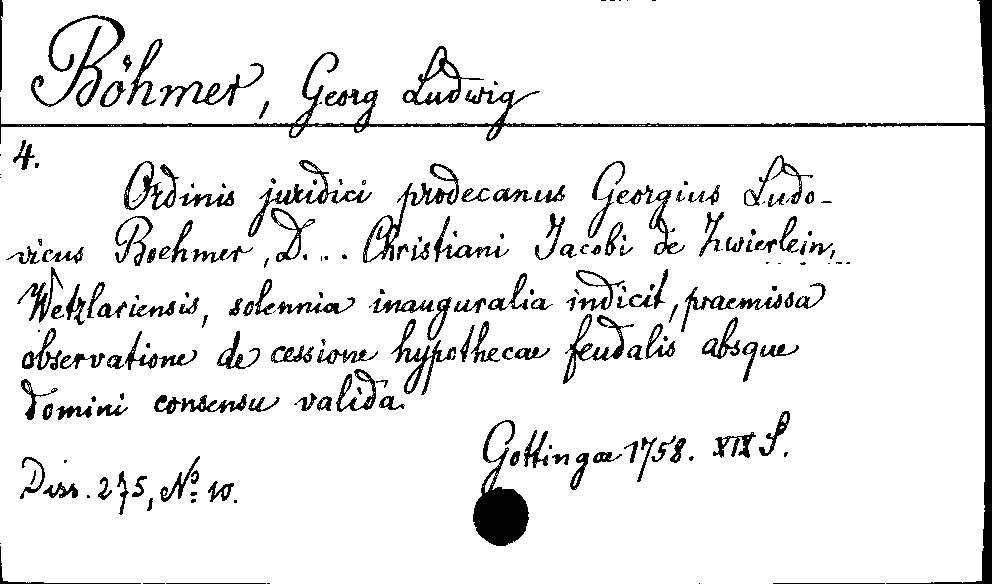 Böhmer, Georg Ludwig
4.
Ordinis juridici prodecanus Georgius Ludo-
vicus Boehmer, D. . . Christiani Jacobi de Zwierlein,
Wetzlariensis, solennia inauguralia indicit, praemissa
observatione de cessione hypothecae feudalis absque
domini consensu valida.
Gottingae 1758. XIX S.
Diss. 275, No 10.